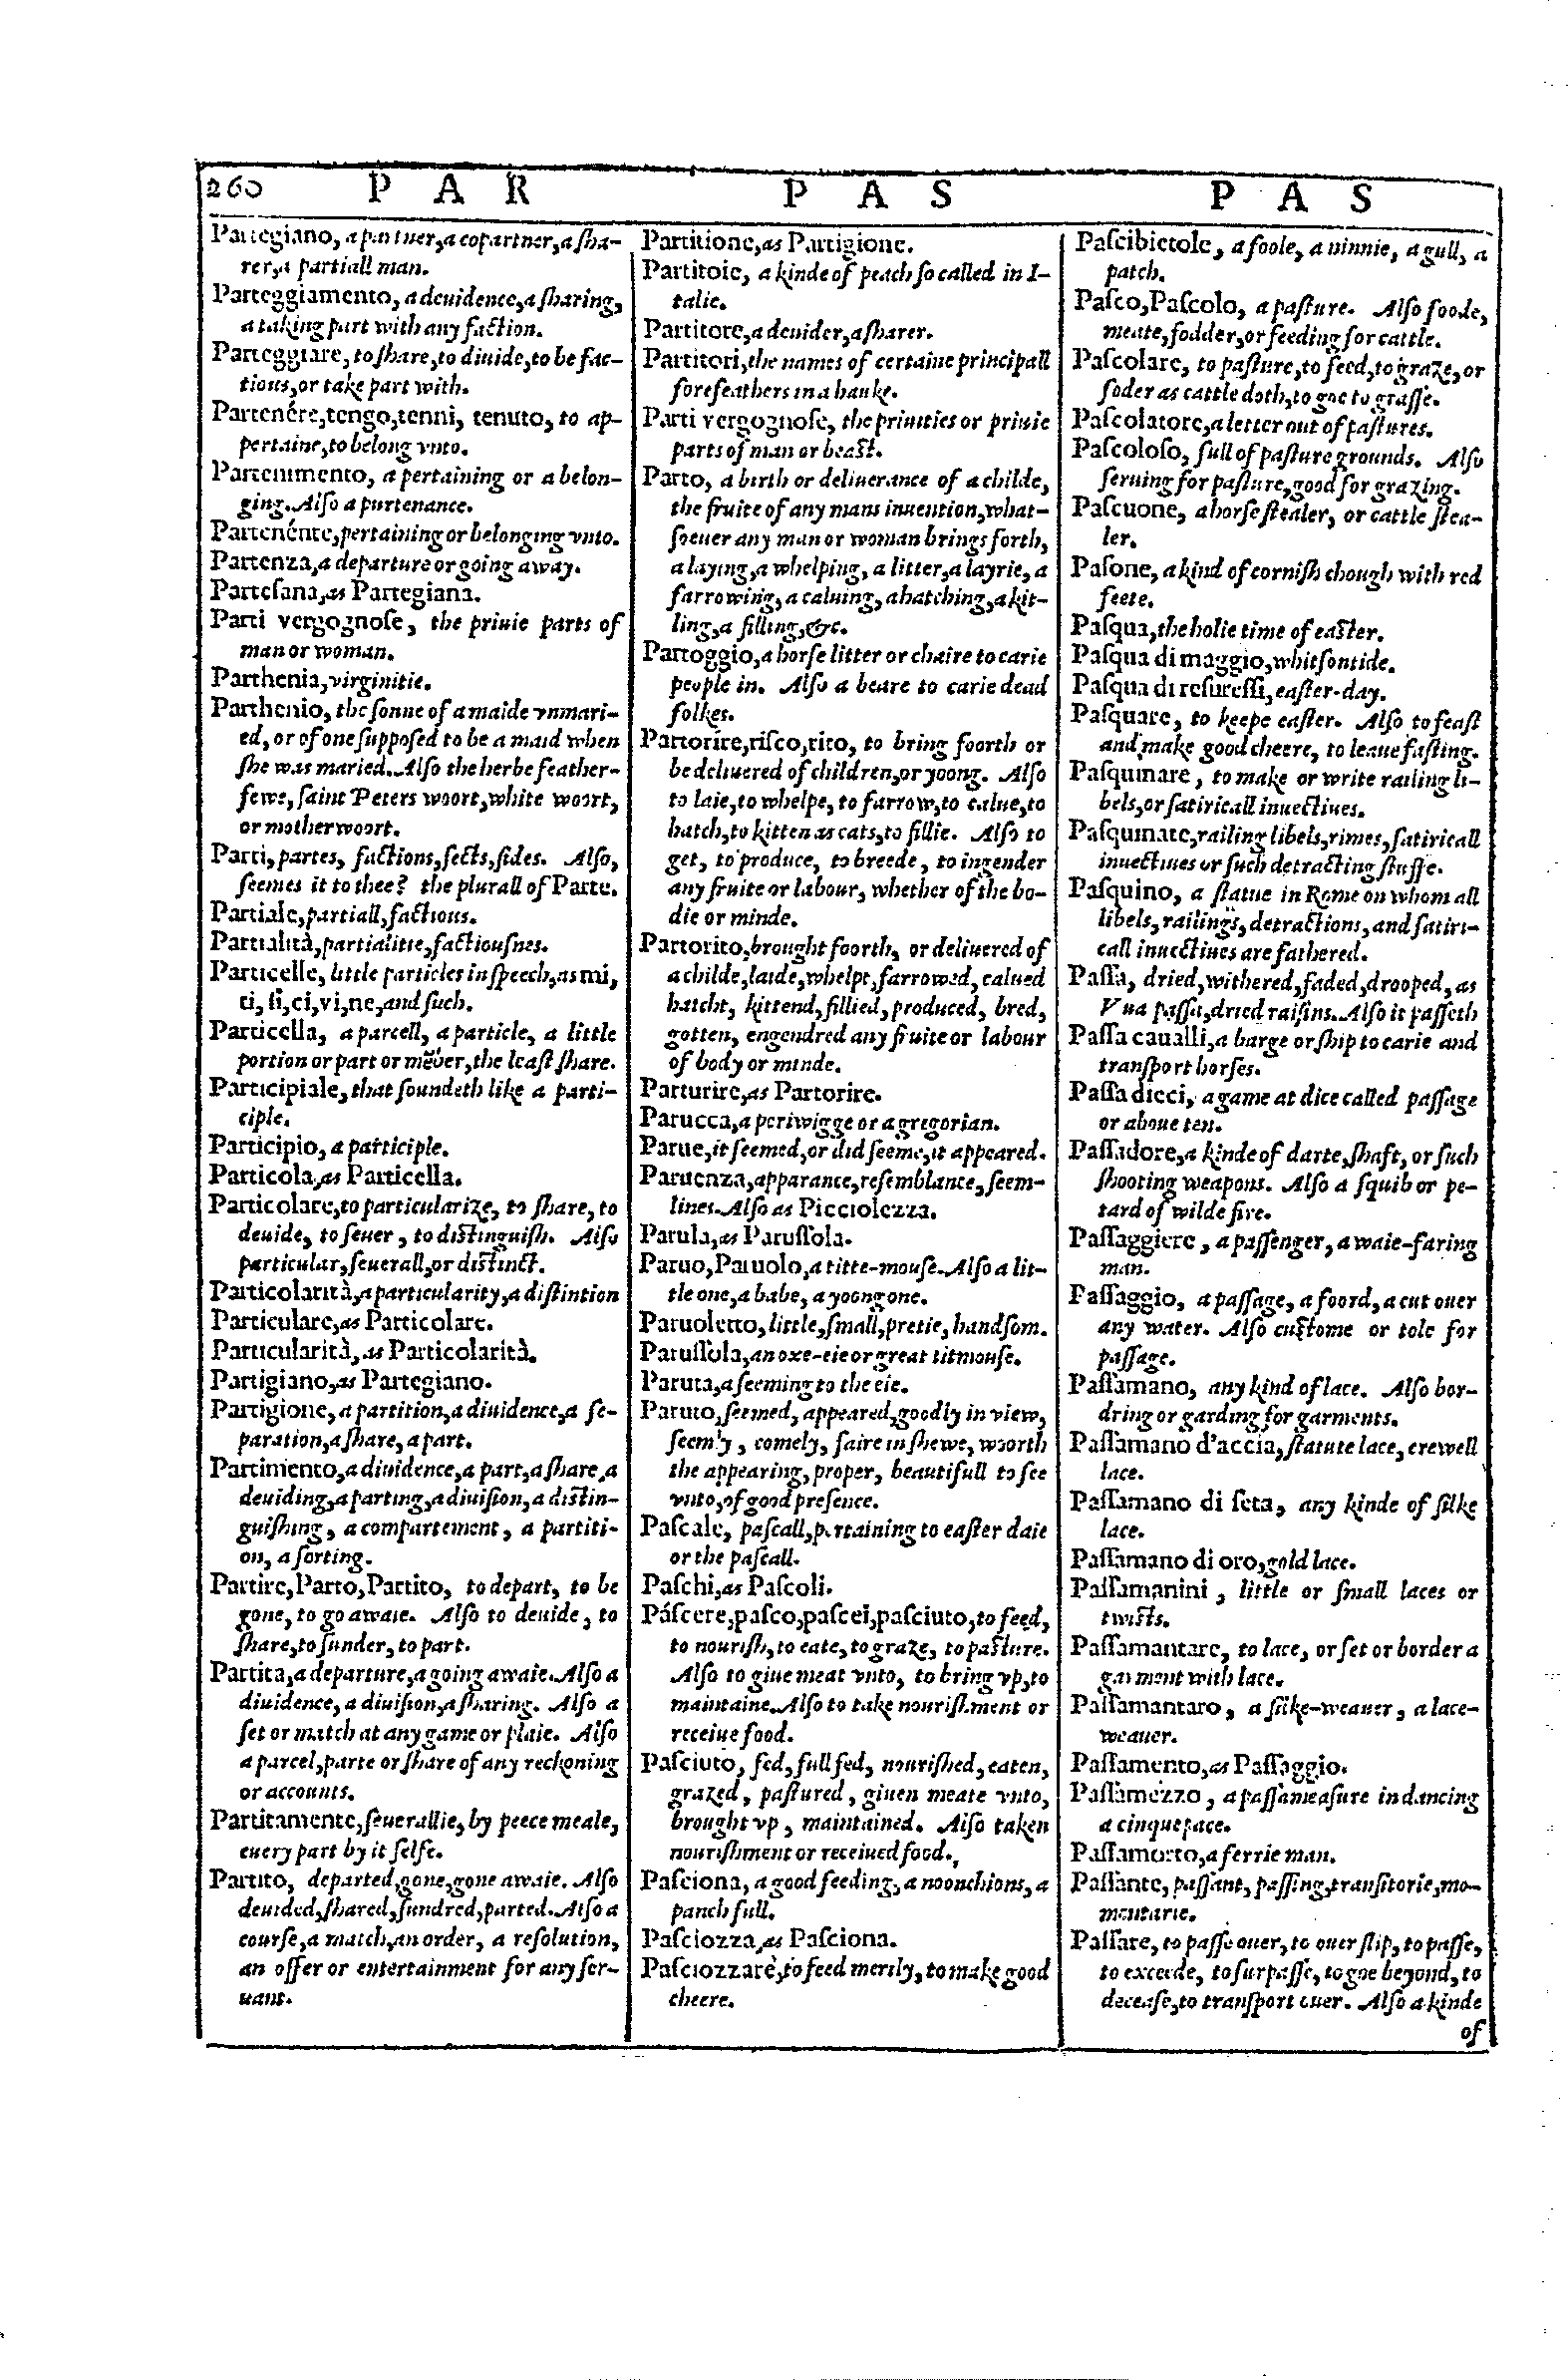 260 P A R P A S P A S
Partegiano, a partner, a copartner, a ſha-
rer, a partiall man.
Parteggiamento, a deuidence, a ſharing,
a taking part with any faction.
Parteggiare, to ſhare, to diuide, to be fac-
tious, or take part with.
Partenére, tengo, tenni, tenuto, to ap-
pertaine, to belong vnto.
Partenimento, a pertaining or a belon-
ging. Alſo a purtenance.
Partenénte, pertaining or belonging vnto.
Partenza, a departure or going away.
Parteſana, as Partegiana.
Parti vergognoſe, the priuie parts of
man or woman.
Parthenia, virginitie.
Parthenio, the ſonne of a maide vnmari-
ed, or of one ſuppoſed to be a maid when
ſhe was maried. Alſo the herbe feather-
fewe, ſaint Peters woort, white woort,
or motherwoort.
Parti, partes, factions, ſects, ſides. Alſo,
ſeemes it to thee? the plurall of Parte.
Partiale, partiall, factious.
Partialità, partialitie, factiouſnes.
Particelle, little particles in ſpeech, as mi,
ti, ſi, ci, vi, ne, and ſuch.
Particella, a parcell, a particle, a little
portion or part or mẽber, the leaſt ſhare.
Participiale, that ſoundeth like a parti-
ciple.
Participio, a participle.
Particola, as Particella.
Particolare, to particularize, to ſhare, to
deuide, to ſeuer, to diſtinguiſh. Alſo
particular, ſeuerall, or diſtinct.
Particolarità, a particularity, a diſtintion
Particulare, as Particolare.
Particularità, as Particolarità.
Partigiano, as Partegiano.
Partigione, a partition, a diuidence, a ſe-
paration, a ſhare, a part.
Partimento, a diuidence, a part, a ſhare, a
deuiding, a parting, a diuiſion, a diſtin-
guiſhing, a compartement, a partiti-
on, a ſorting.
Partire, Parto, Partito, to depart, to be
gone, to go awaie. Alſo to deuide, to
ſhare, to ſunder, to part.
Partita, a departure, a going awaie. Alſo a
diuidence, a diuiſion, a ſharing. Alſo a
ſet or match at any game or plaie. Alſo
a parcel, parte or ſhare of any reckoning
or accounts.
Partitamente, ſeuerallie, by peece meale,
euery part by it ſelfe.
Partito, departed, gone, gone awaie. Alſo
deuided, ſhared, ſundred, parted. Alſo a
courſe, a match, an order, a reſolution,
an offer or entertainment for any ſer-
uant.
Partitione, as Partigione.
Partitoie, a kinde of peach ſo called in I-
talie.
Partitore, a deuider, a ſharer.
Partitori, the names of certaine principall
forefeathers in a hauke.
Parti vergognoſe, the priuities or priuie
parts of man or beaſt.
Parto, a birth or deliuerance of a childe,
the fruite of any mans inuention, what-
ſoeuer any man or woman brings forth,
a laying, a whelping, a litter, a layrie, a
farrowing, a caluing, a hatching, a kit-
ling, a filling, &c.
Partoggio, a horſe litter or chaire to carie
people in. Alſo a beare to carie dead
folkes.
Partorire, riſco, rito, to bring foorth or
be deliuered of children, or yoong. Alſo
to laie, to whelpe, to farrow, to calue, to
hatch, to kitten as cats, to fillie. Alſo to
get, to produce, to breede, to ingender
any fruite or labour, whether of the bo-
die or minde.
Partorito, brought foorth, or deliuered of
a childe, laide, whelpt, farrowed, calued
hatcht, kittend, fillied, produced, bred,
gotten, engendred any fruite or labour
of body or minde.
Parturire, as Partorire.
Parucca, a periwigge or a gregorian.
Parue, it ſeemed, or did ſeeme, it appeared.
Paruenza, apparance, reſemblance, ſeem-
lines. Alſo as Picciolezza.
Parula, as Paruſſola.
Paruo, Paruolo, a titte-mouſe. Alſo a lit-
tle one, a babe, a yoong one.
Paruoletto, little, ſmall, pretie, handſom.
Paruſſola, an oxe-eie or great titmouſe.
Paruta, a ſeeming to the eie.
Paruto, ſeemed, appeared, goodly in view,
ſeemly, comely, faire in ſhewe, woorth
the appearing, proper, beautifull to ſee
vnto, of good preſence.
Paſcale, paſcall, pertaining to eaſter daie
or the paſcall.
Paſchi, as Paſcoli.
Páſcere, paſco, paſcei, paſciuto, to feed,
to nouriſh, to eate, to graze, to paſture.
Alſo to giue meat vnto, to bring vp, to
maintaine. Alſo to take nouriſhment or
receiue food.
Paſciuto, fed, full fed, nouriſhed, eaten,
grazed, paſtured, giuen meate vnto,
brought vp, maintained. Alſo taken
nouriſhment or receiued food.
Paſciona, a good feeding, a noonchions, a
panch full.
Paſciozza, as Paſciona.
Paſciozzare, to feed merily, to make good
cheere.
Paſcibietole, a foole, a ninnie, a gull, a
patch.
Paſco, Paſcolo, a paſture. Alſo foode,
meate, fodder, or feeding for cattle.
Paſcolare, to paſture, to feed, to graze, or
foder as cattle doth, to goe to graſſe.
Paſcolatore, a letter out of paſtures.
Paſcoloſo, full of paſture grounds. Alſo
ſeruing for paſture, good for grazing.
Paſcuone, a horſe ſtealer, or cattle ſtea-
ler.
Paſone, a kind of corniſh chough with red
feete.
Paſqua, the holie time of eaſter.
Paſqua di maggio, whitſontide.
Paſqua di reſureſſi, eaſter-day.
Paſquare, to keepe eaſter. Alſo to feaſt
and make good cheere, to leaue faſting.
Paſquinare, to make or write railing li-
bels, or ſatiricall inuectiues.
Paſquinate, railing libels, rimes, ſatiricall
inuectiues or ſuch detracting ſtuffe.
Paſquino, a ſtatue in Rome on whom all
libels, railings, detractions, and ſatiri-
call inuectiues are fathered.
Paſſa, dried, withered, faded, drooped, as
Vua paſſa, dried raiſins. Alſo it paſſeth
Paſſa caualli, a barge or ſhip to carie and
tranſport horſes.
Paſſa dieci, a game at dice called paſſage
or aboue ten.
Paſſadore, a kinde of darte, ſhaft, or ſuch
ſhooting weapons. Alſo a ſquib or pe-
tard of wilde fire.
Paſſaggiere, a paſſenger, a waie-faring
man.
Paſſaggio, a paſſage, a foord, a cut ouer
any water. Alſo cuſtome or tole for
paſſage.
Paſſamano, any kind of lace. Alſo bor-
dring or garding for garments.
Paſſamano d'accia, ſtatute lace, crewell
lace.
Paſſamano di ſeta, any kinde of ſilke
lace.
Paſſamano di oro, gold lace.
Paſſamanini, little or ſmall laces or
twiſts.
Paſſamantare, to lace, or ſet or border a
garment with lace.
Paſſamantaro, a ſilke-weauer, a lace-
weauer.
Paſſamento, as Paſſaggio.
Paſſamezzo, a paſſameaſure in dancing
a cinquepace.
Paſſamorto, a ferrie man.
Paſſante, paſſant, paſſing, tranſitorie, mo-
mentarie.
Paſſare, to paſſe ouer, to ouer ſlip, to paſſe,
to exceede, to ſurpaſſe, to goe beyond, to
deceaſe, to tranſport ouer. Alſo a kinde
of